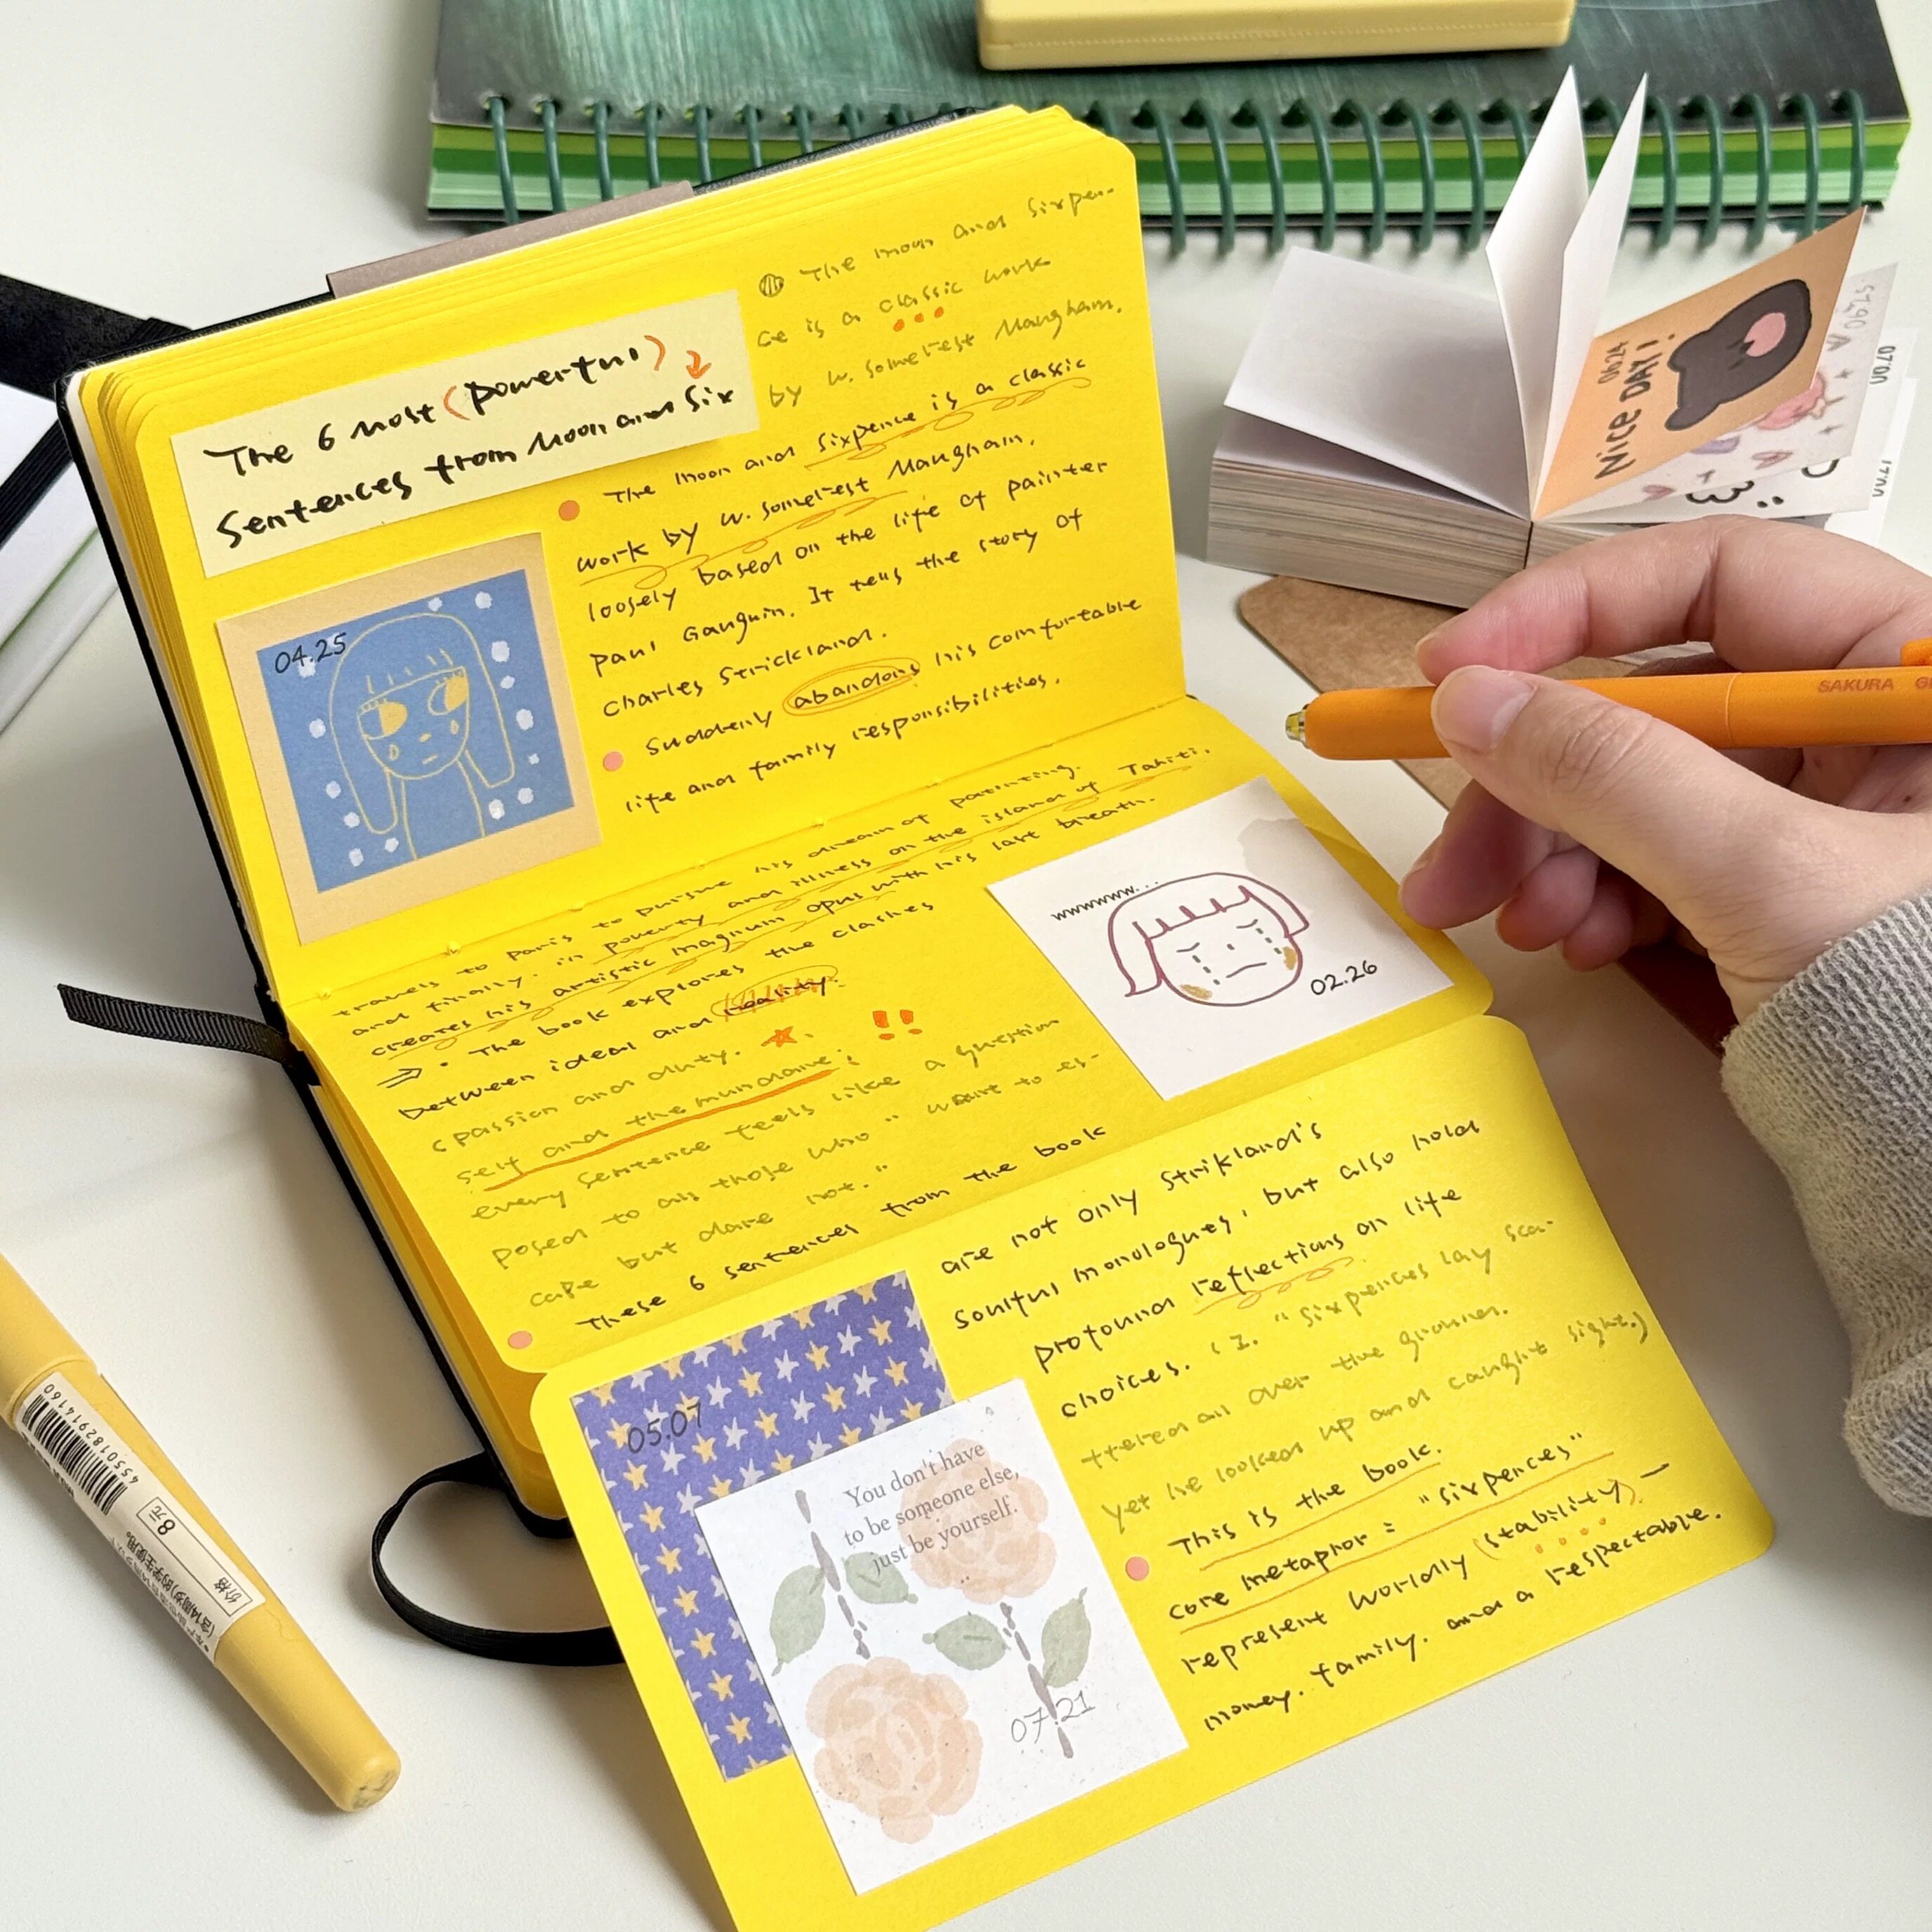 The 6 most (powerful)
Sentences from Moon and Six
The moon and Sixpen-
ce is a classic work
by W. Somerest Maugham.
The moon and Sixpence is a classic
work by W. Somerest Maugham,
loosely based on the life of painter
Paul Gauguin. It tells the story of
Charles Strickland.
Suddenly abandons his comfortable
life and family responsibilities.
04.25
travels to Paris to pursue his dream of painting.
and finally. in poverty and illness on the island of Tahiti.
creates his artistic magnum opus with his last breath.
⇒ · The book explores the clashes
between ideal and reality.
(passion and duty.
self and the mundane; !!
every sentence feels like a question
posed to all those who " want to es-
cape but dare not."
These 6 sentences from the book
wwwwww...
02.26
are not only Strikland's
soulful monologues, but also hold
profound reflections on life
choices. (I. "Sixpences lay sca-
ttered all over the ground.
Yet he looked up and caught sight.)
This is the book.
core metapror: "sixpences"
represent worldly (stability) —
money. family. and a respectable.
05.07
You don't have
to be someone else,
just be yourself.
07.21
0624
NICE DAY!
0625
SAKURA
4550182914160
8元
价格
(含14周岁)的学生使用。